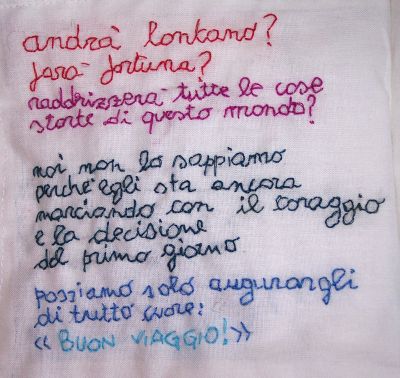 andrà lontano?
farà fortuna?
raddrizzerà tutte le cose
storte di questo mondo?
noi non lo sappiamo
perché egli sta ancora
marciando con il coraggio
e la decisione
del primo giorno
possiamo solo augurargli
di tutto cuore:
« BUON VIAGGIO! »